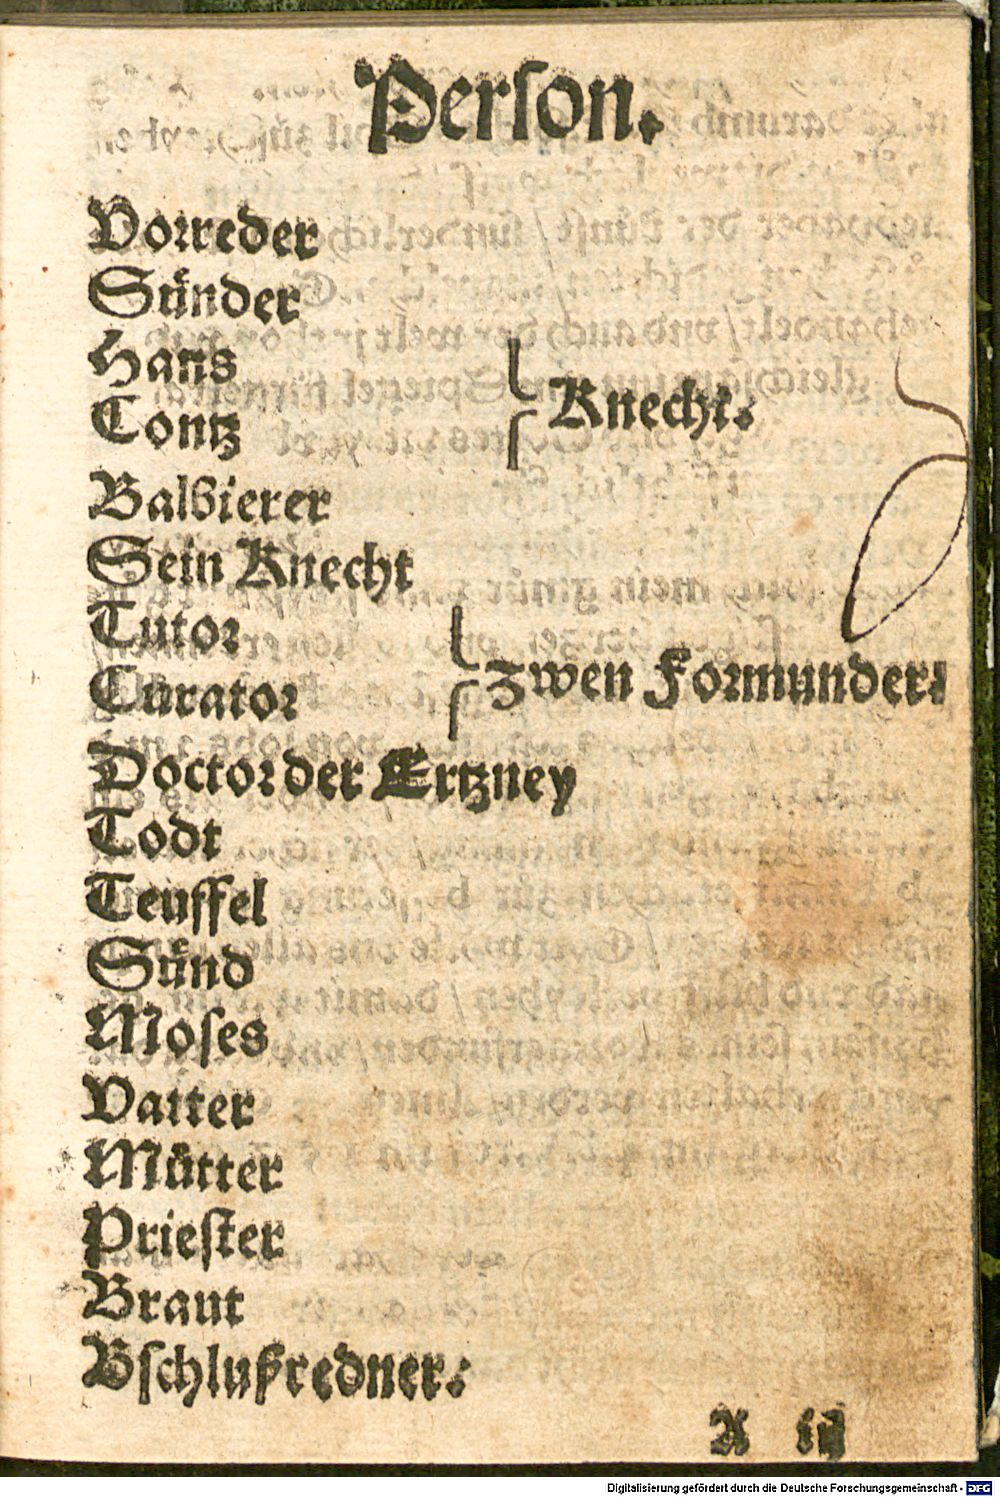 Perſon.
Vorreder
Sünder
Hans
Contz
Knecht.
Balbierer
Sein Knecht
Tutor
Curator
Zwen Formunder.
Doctor der Ertzney
Todt
Teuffel
Sünd
Moſes
Vatter
Můtter
Prieſter
Braut
Bſchlußredner.
A iij
Digitalisierung gefördert durch die Deutsche Forschungsgemeinschaft - DFG